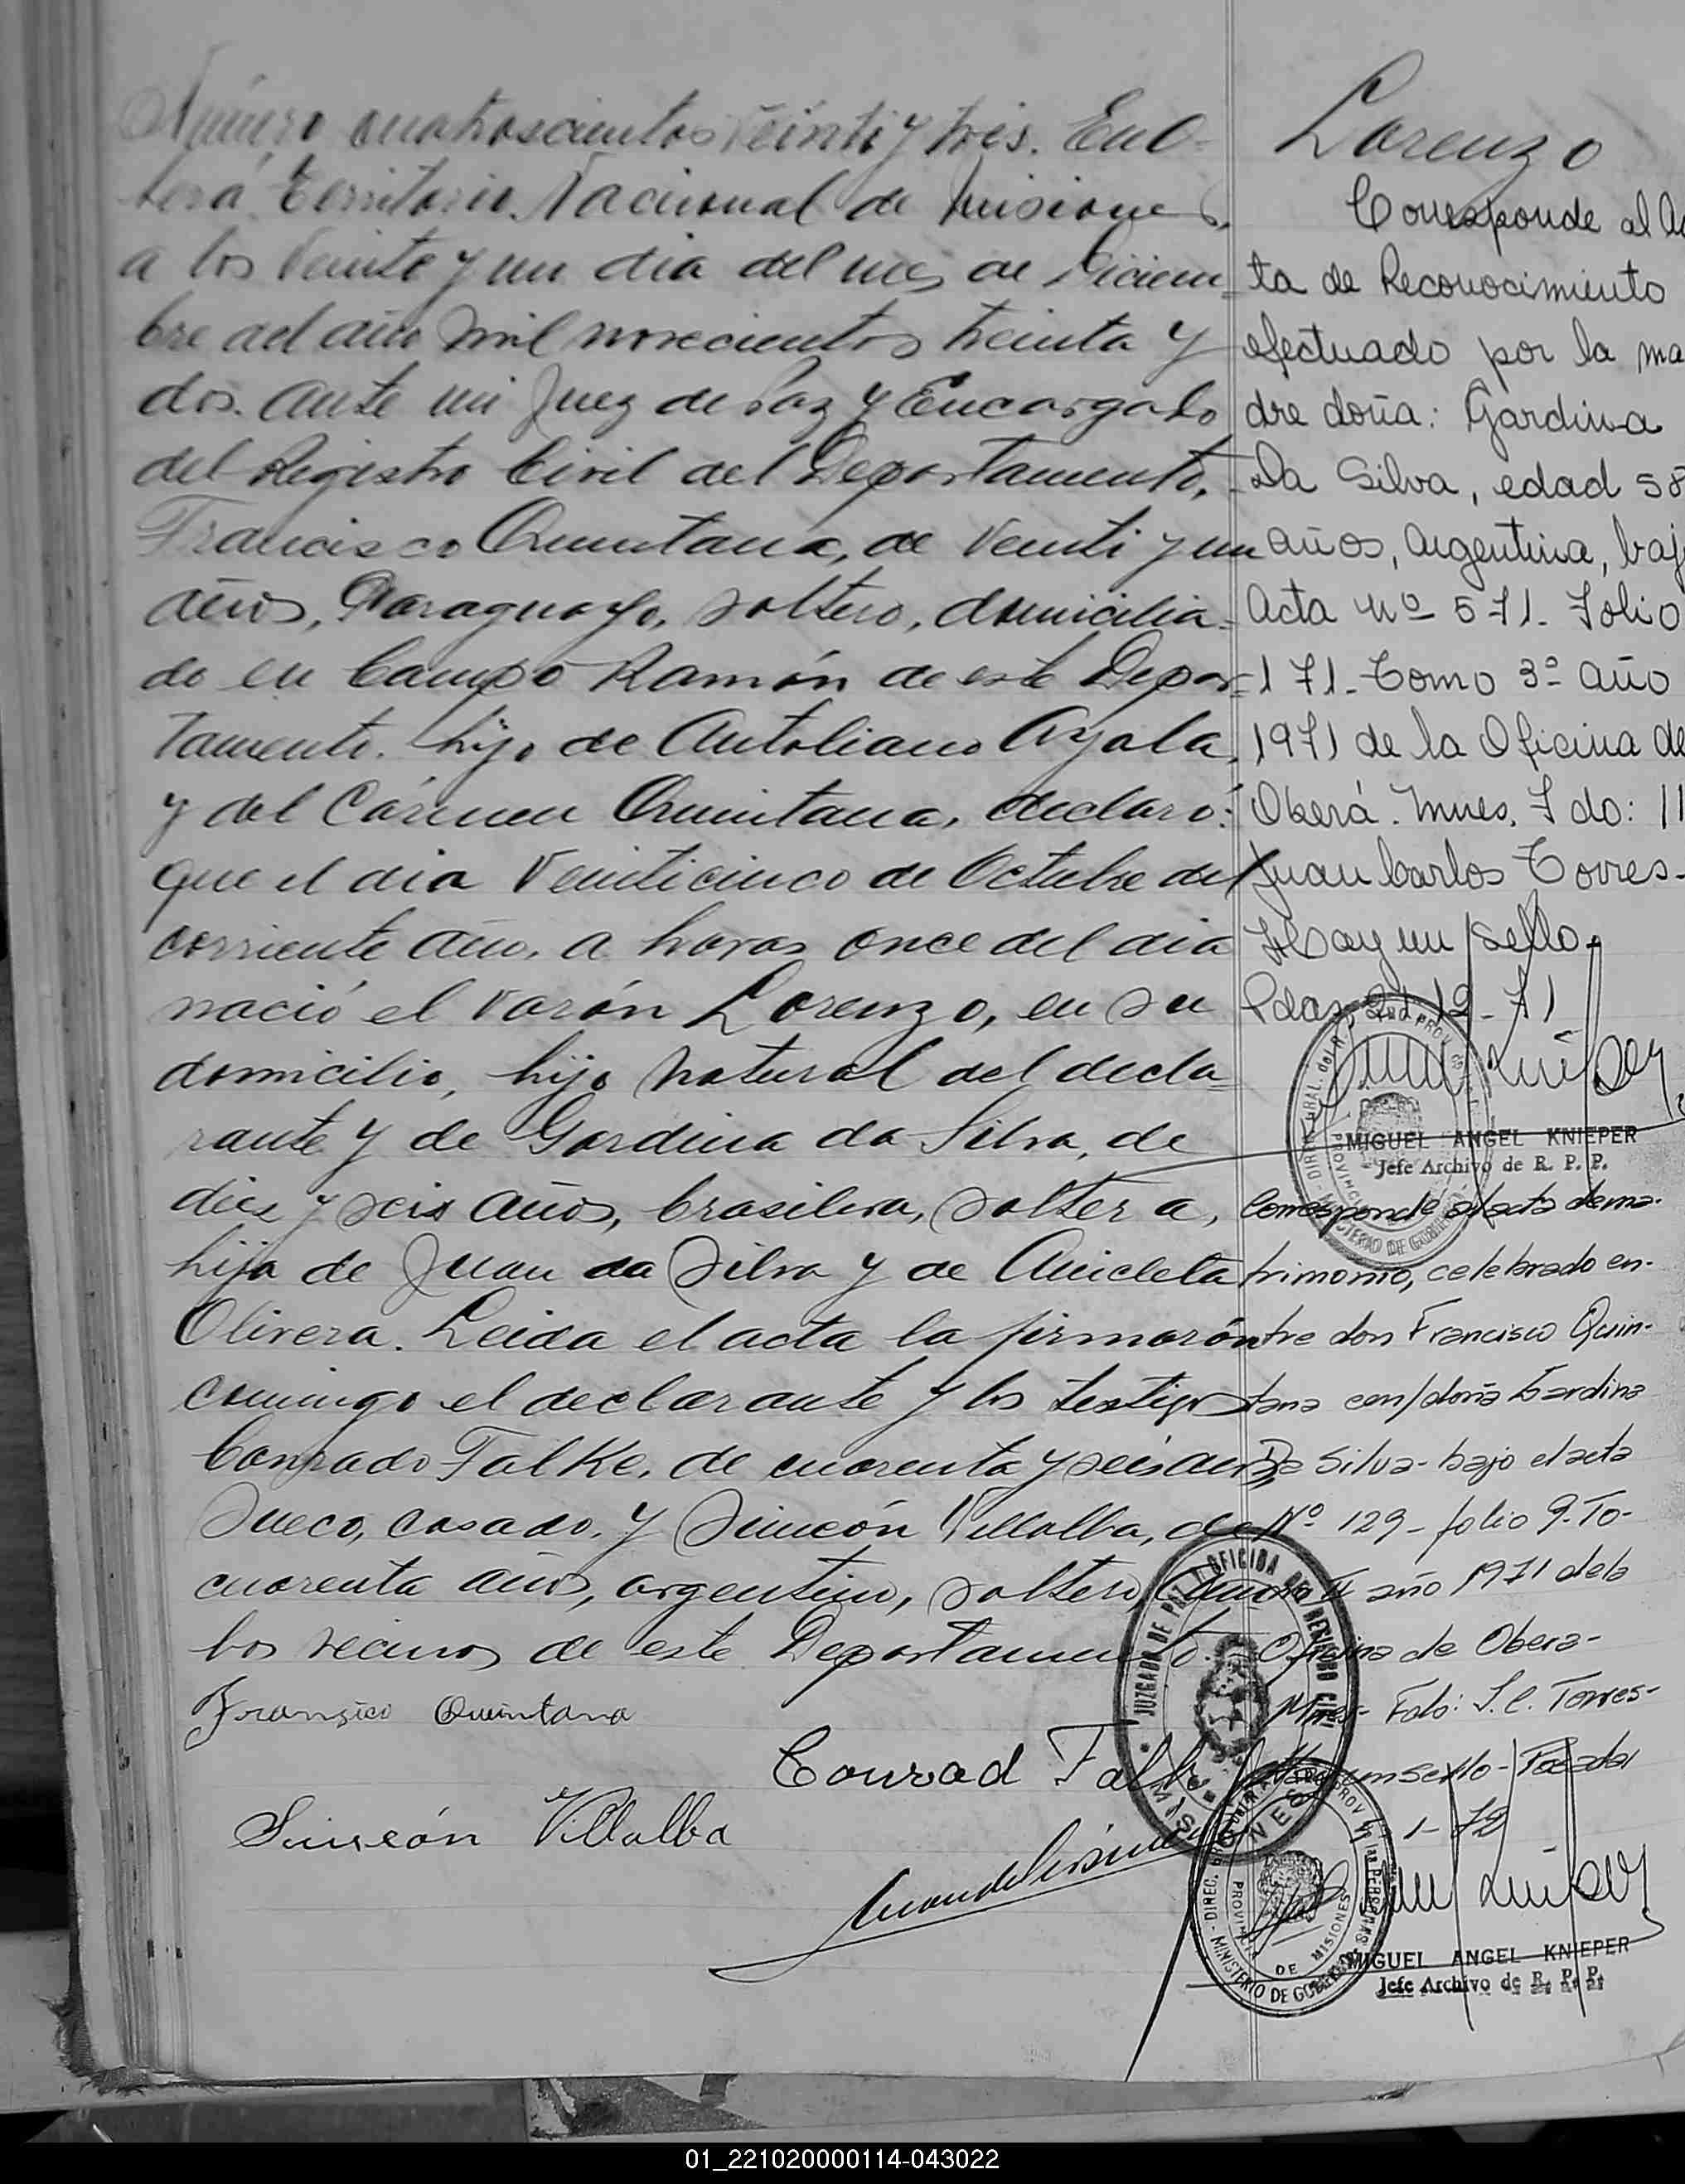 Número cuatroscientos veinti y tres. En O-
berá Territorio Nacional de Misiones,
a los veinte y un dia del mes de Diciem-
bre del año mil novecientos treinta y
dos. Ante mi Juez de Paz y Encargado
del Registro Civil del Departamento,
Francisco Quintana, de veinti y un
años, Paraguayo, soltero, domicilia-
do en Campo Ramón de este Depar-
tamento. hijo de Antoliano Ayala,
y del Cármen Quintana, declaró:
que el dia veinticinco de Octubre del
corriente año, a horas once del dia
nació el varón Lorenzo, en su
domicilio, hijo natural del decla-
rante y de Gardina da Silva, de
diez y seis años, brasilera, soltera,
hija de Juan da Silva y de Anicleta
Olivera. Leida el acta la firmarón
conmigo el declarante y los testigos
Conrado Falke, de cuarenta y seis años
Sueco, casado, y Simeón Villalba, de
cuarenta años, argentino, soltero, am-
bos vecinos de este Departamento.
Fransico Quintana
Conrad Falk
Simeón Villalba
JUZGADO DE PAZ Y OFICINA DEL REGISTRO CIVIL
MISIONES
Lorenzo
Corresponde al Ac
ta de Reconocimiento
efectuado por la ma
dre doña: Gardina
Da Silva, edad 58
años, Argentina, baj
Acta Nº 571. Folio
171- Tomo 3º año
1971 de la Oficina de
Oberá. Mnes. Fdo: 11
Juan Carlos Torres-
Hay un sello.
Pdas, 21-12-71
MIGUEL ANGEL KNIEPER
Jefe Archivo de R. P. P.
Corresponde al acta de ma-
trimonio, celebrado en-
tre don Francisco Quin-
tana con/doña Gardina
Da Silva- bajo el acta
Nº 129- folio 9. To-
mo II año 1971 de la
Oficina de Obera-
Mnes- Fdo: J.C. Torres-
Hay un sello- Posadas
1-72
PROVINCIA DE MISIONES
MIGUEL ANGEL KNIEPER
Jefe Archivo de R. P. P.
01_221020000114-043022